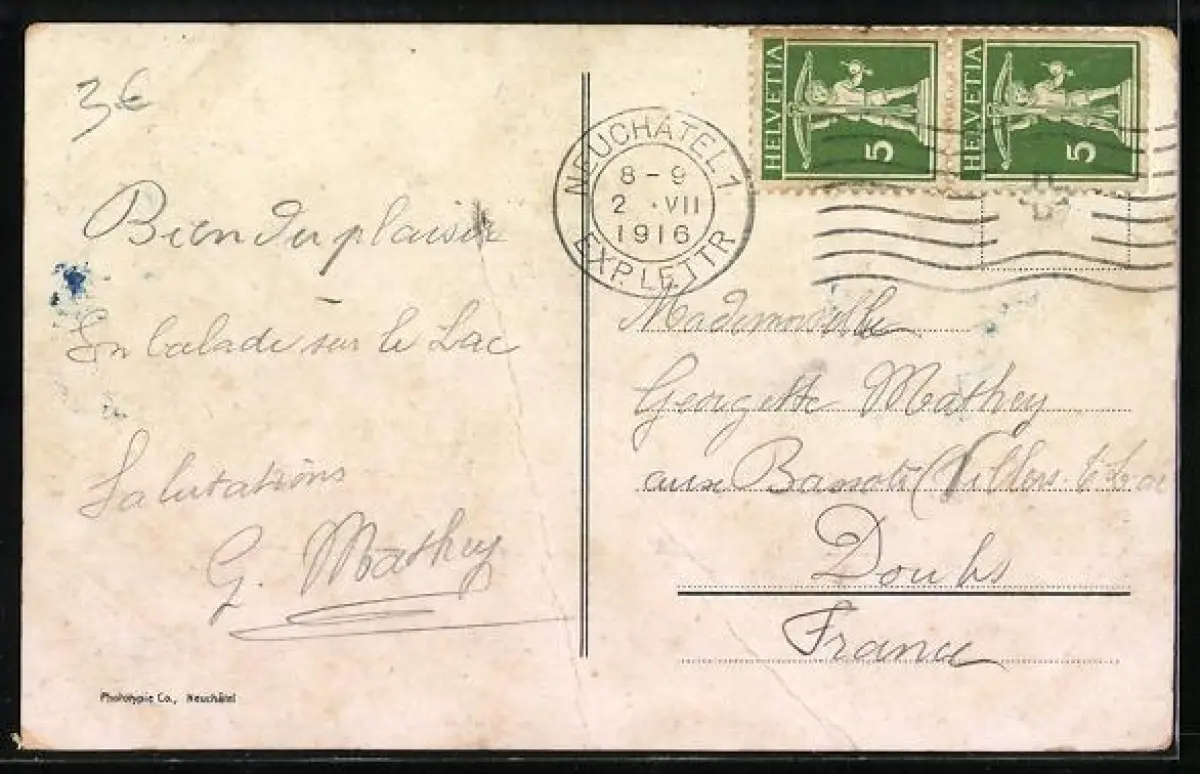 3€
Bien du plaisir
En balade sur le Lac
Salutations
G. Mathey
Phototypie Co., Neuchâtel
HELVETIA 5
HELVETIA 5
NEUCHÂTEL 1
8-9
2 . VII
1916
EXP. LETTR
Mademoiselle
Georgette Mathey
aux Bassots (Villers-le-Lac
Doubs
France